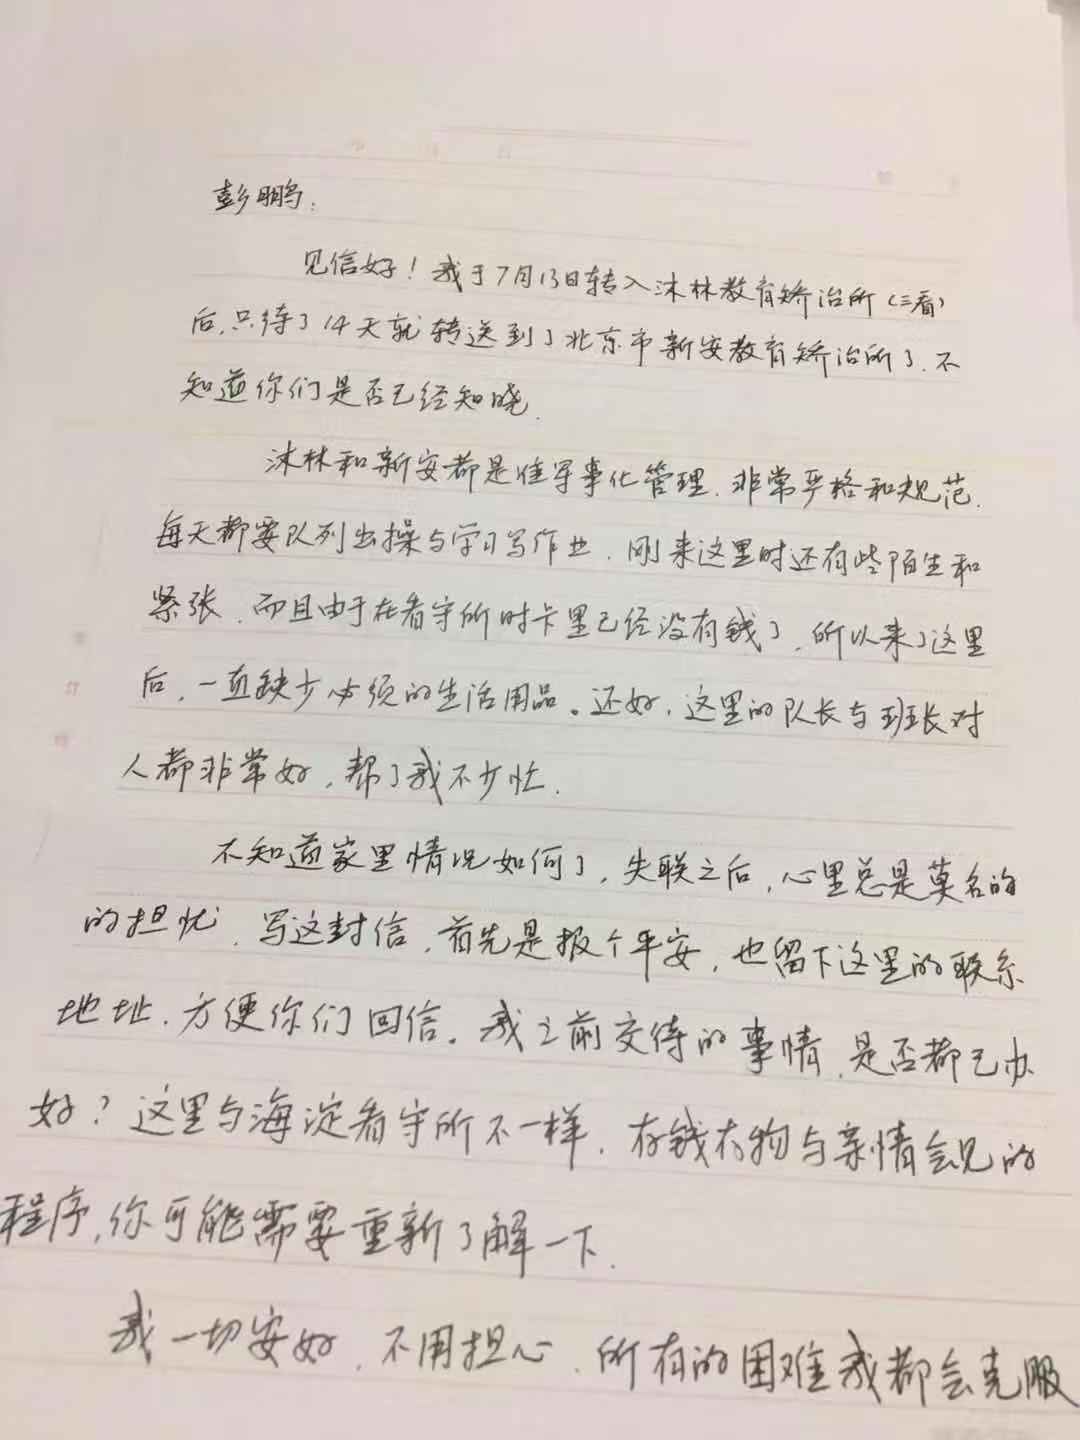 彭鹏:
见信好!我于7月13日转入沐林教育矫治所(三看)
后,只待了14天就转送到了北京市新安教育矫治所了.不
知道你们是否已经知晓.
沐林和新安都是准军事化管理.非常严格和规范.
每天都要队列出操与学习写作业.刚来这里时还有些陌生和
紧张.而且由于在看守所时卡里已经没有钱了,所以来了这里
后,一直缺少必须的生活用品。还好,这里的队长与班长对
人都非常好,帮了我不少忙.
不知道家里情况如何了,失联之后,心里总是莫名的
的担忧.写这封信,首先是报个平安,也留下这里的联系
地址.方便你们回信。我之前交待的事情,是否都已办
好?这里与海淀看守所不一样.存钱存物与亲情会见的
程序,你可能需要重新了解一下.
我一切安好.不用担心.所有的困难我都会克服